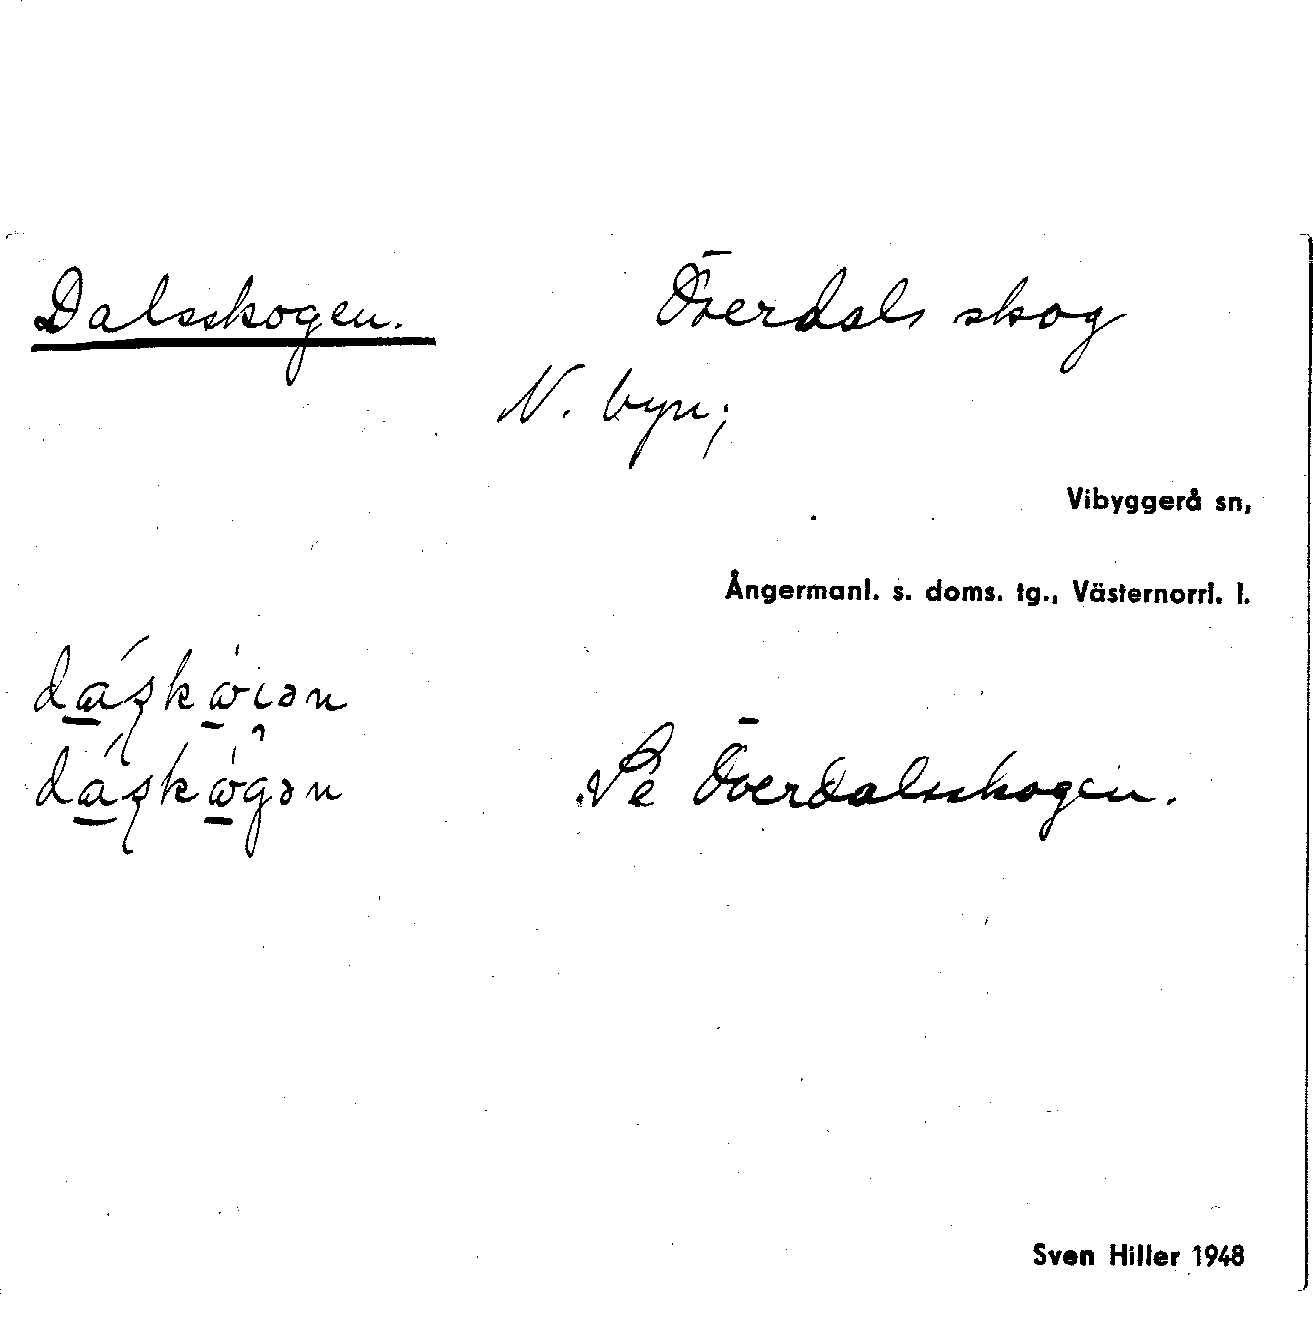 Dalsskogen. Överdals skog
N. byn;
Vibyggerå sn,
Ångermanl. s. doms. tg., Västernorrl. l.
Se Överdalsskogen.
Sven Hiller 1948